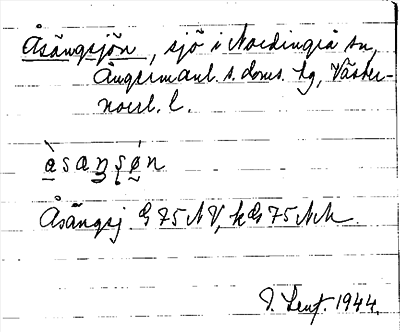 Åsängsjön, sjö i Nordingrå sn,
Ångermanl. s. doms. hg, Väster-
norrl. l.
åsaŋʂǿn
Åsängsj. G 75 NV, kG 75 NN
1944.